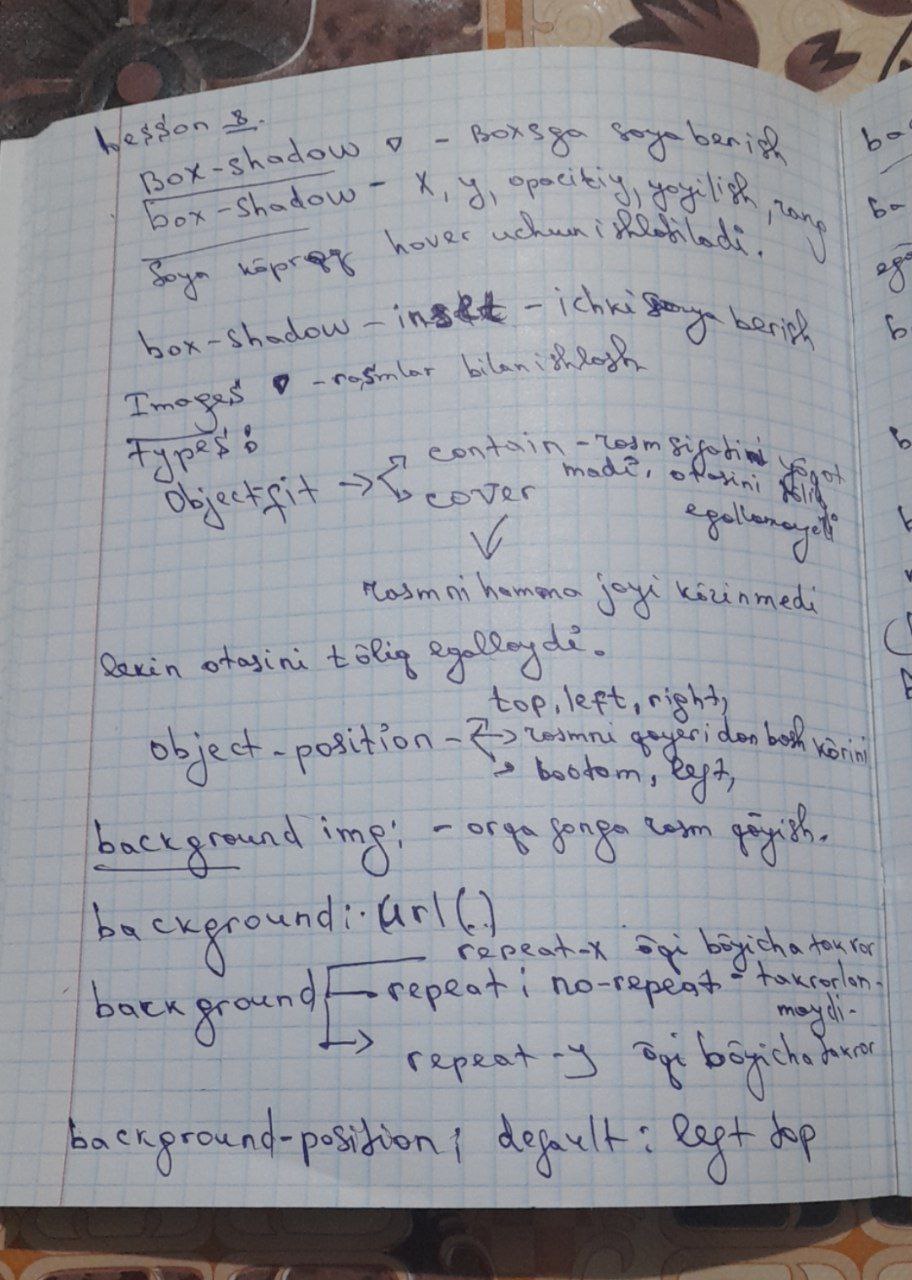 Lesson 8.
Box-shadow - Boxsga soya berish
box-shadow - x, y, opacitiy, yoyilish, rang
Soya ko̅proq hover uchun ishlatiladi.
box-shadow - inset - ichki soya berish
Images - rasmlar bilan ishlash
types:
Object-fit → contain - rasm sifatini yo̅qot
madi, otasini to̅liq
cover
egallamaydi
rasmni hamma joyi ko̅rinmedi
lekin otasini to̅liq egallaydi.
top, left, right,
object-position - → rasmni qayeridan bosh ko̅rini
→ bootom, left,
background img; - orqa fonga rasm qo̅yish.
background: url(.)
repeat-x o̅qi bo̅yicha takror
background repeat; no-repeat - takrorlan-
maydi-
→ repeat-y o̅qi bo̅yicha takror
background-position; default: left top
ba
ba
ega
b
b